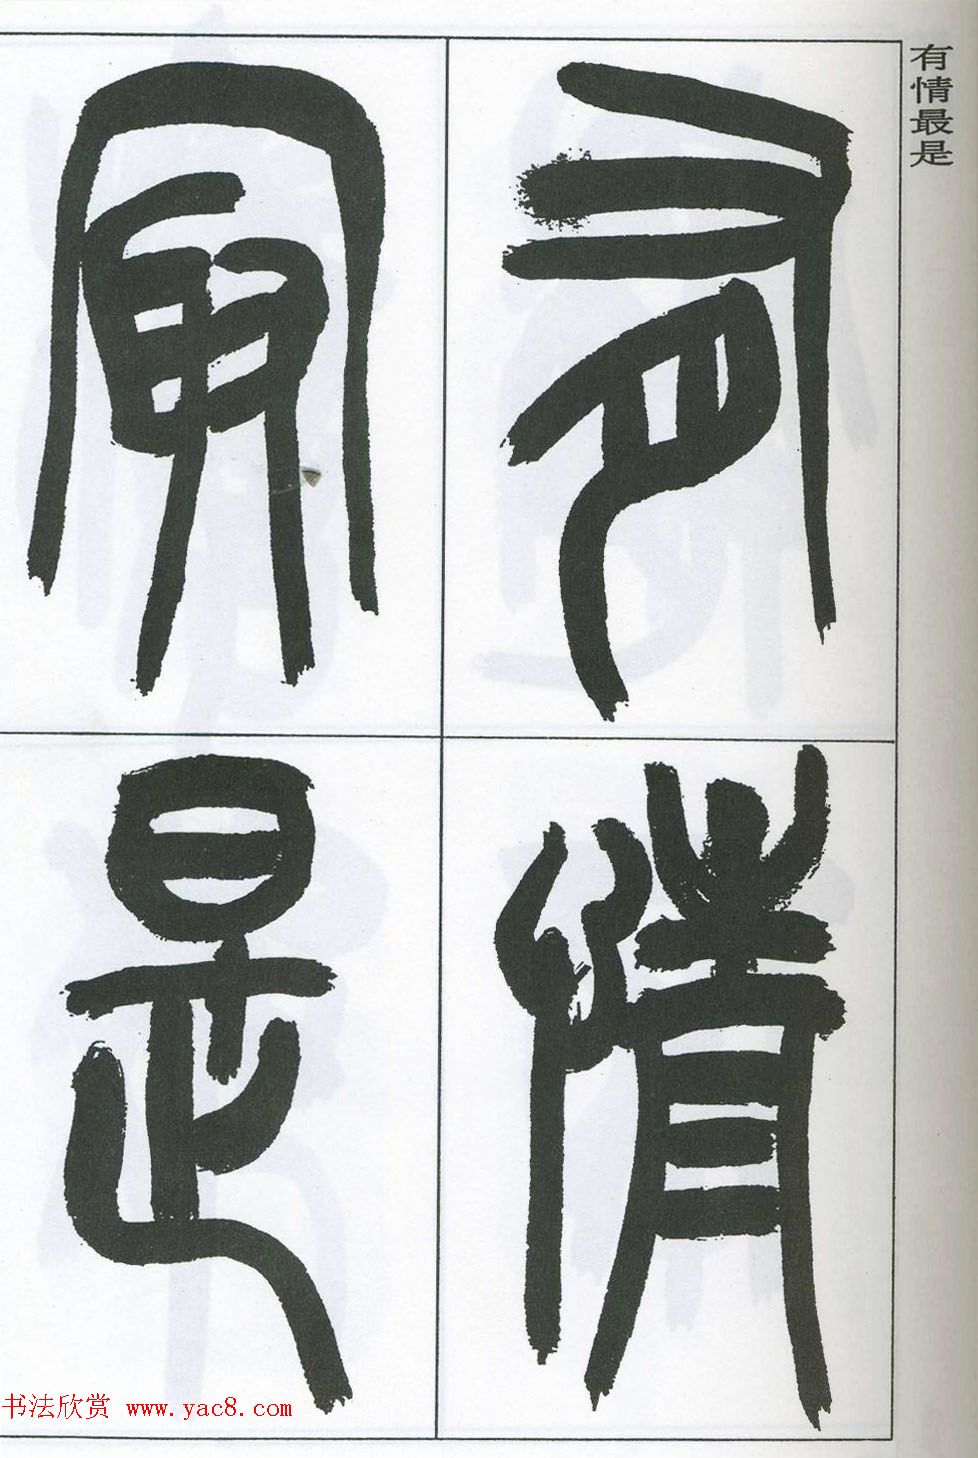 有情最是
有情
最是
书法欣赏 www.yac8.com